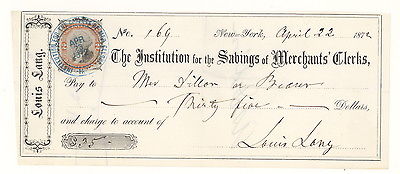 No. 169 New-York, April 22 1872
The Institution for the Savings of Merchants' Clerks,
Pay to Mrs Dillon or Bearer
Thirty five Dollars,
and charge to account of
$35 Louis Lang
Louis Lang.
APR